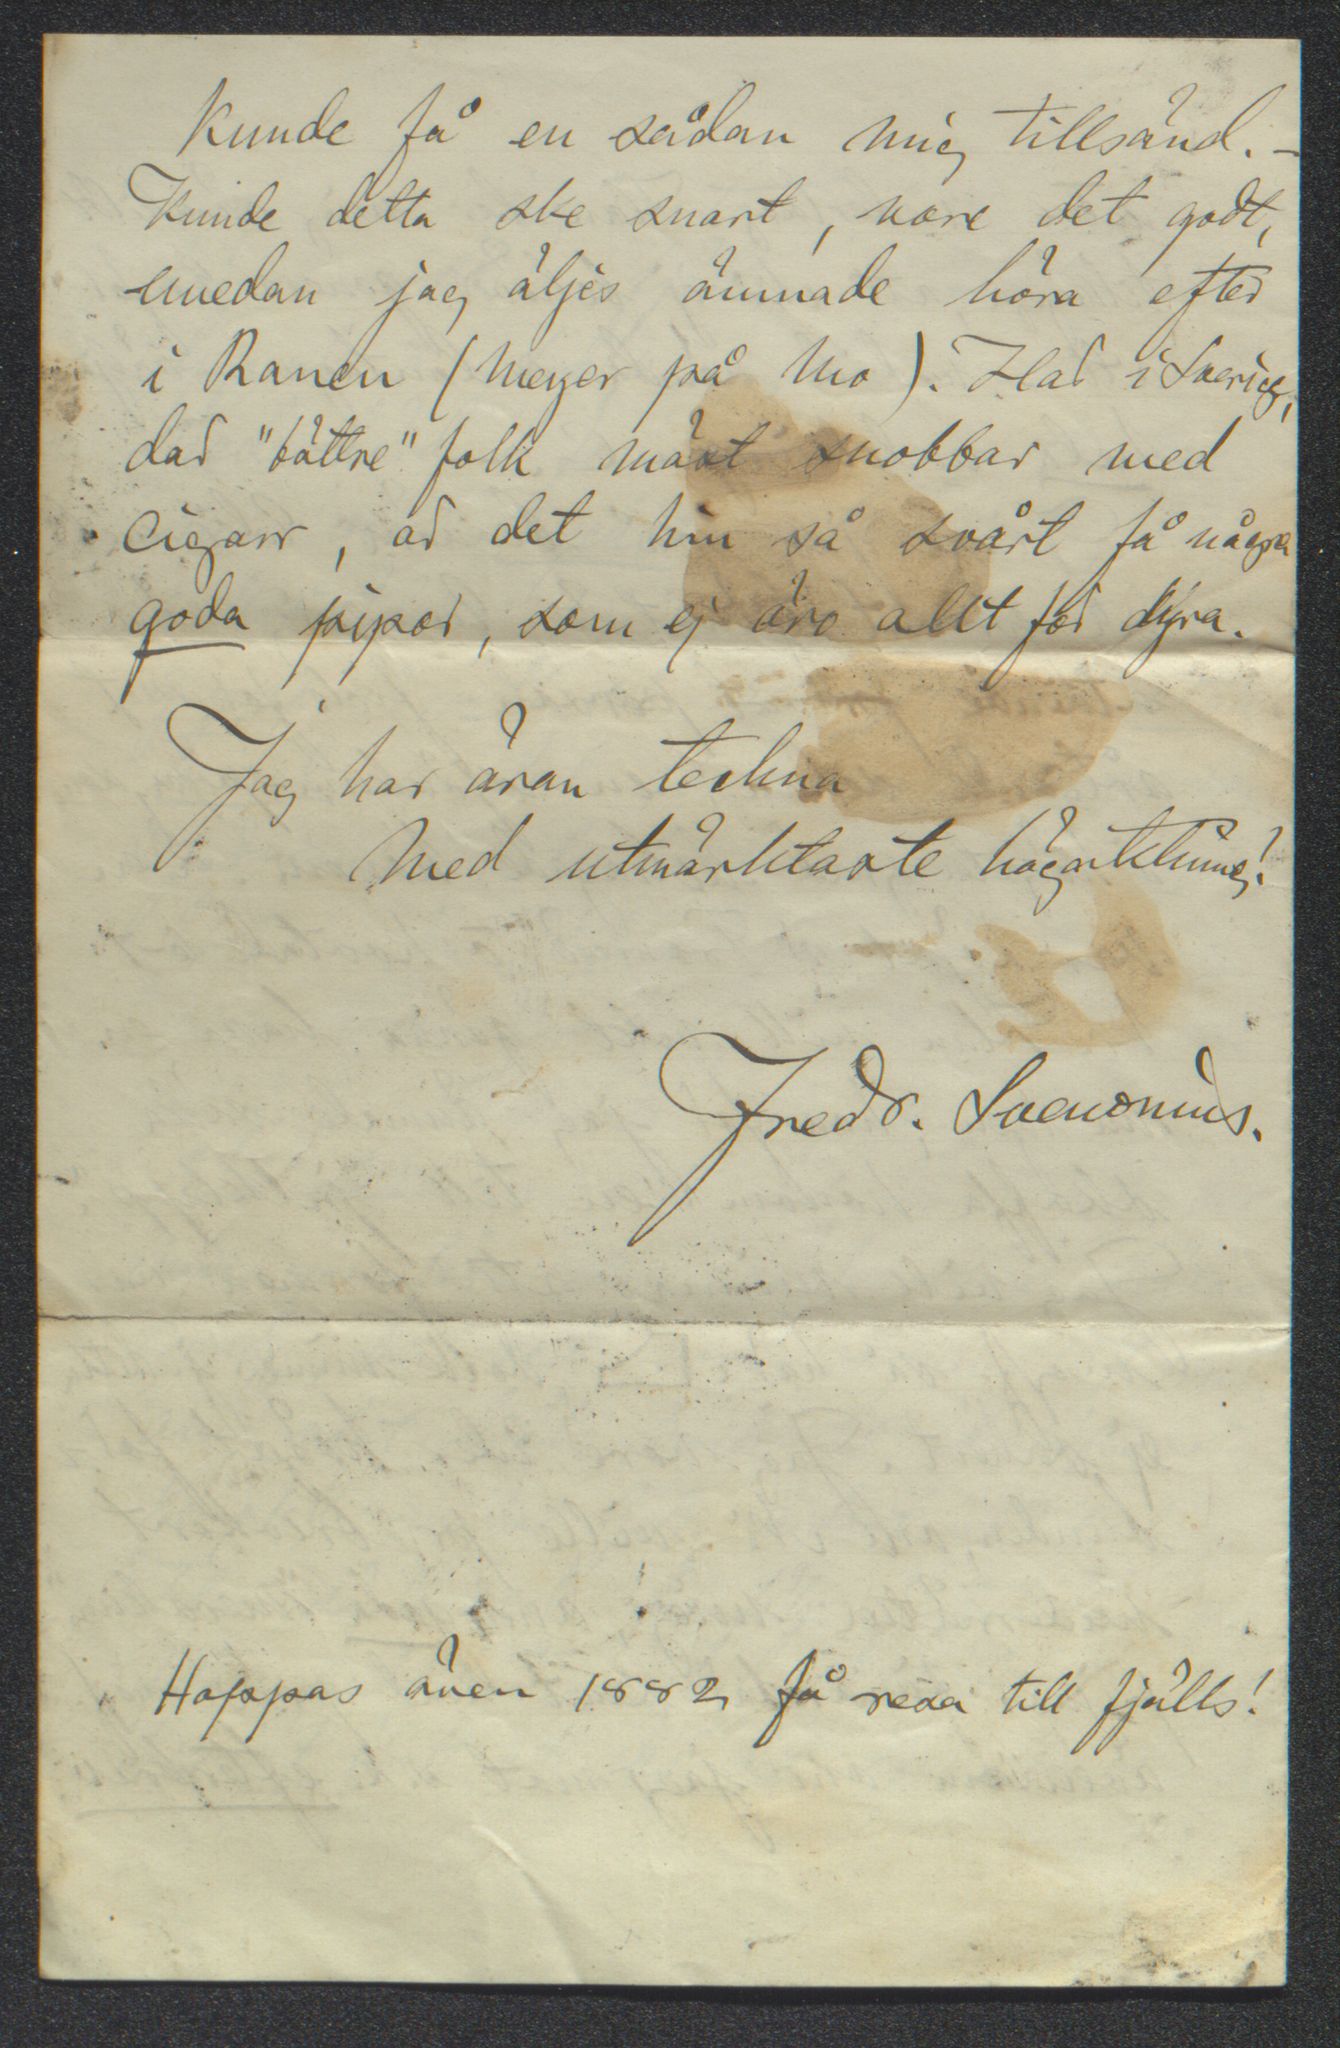 kunde få en sådan mig tillsänd. –
Kunde detta ske snart, vore det godt,
emedan jag äljes ämnade höra efter
i Ranen (Meyer på Mo). Här i Sverige,
där "bättre" folk mäst snobbar med
cigarr, är det så svårt få några
goda pipor, som ej äro allt för dyra.
Jag har äran teckna
Med utmärktaste högaktning!
Fredr. Svenonius.
Hoppas även 1882 få resa till fjälls!